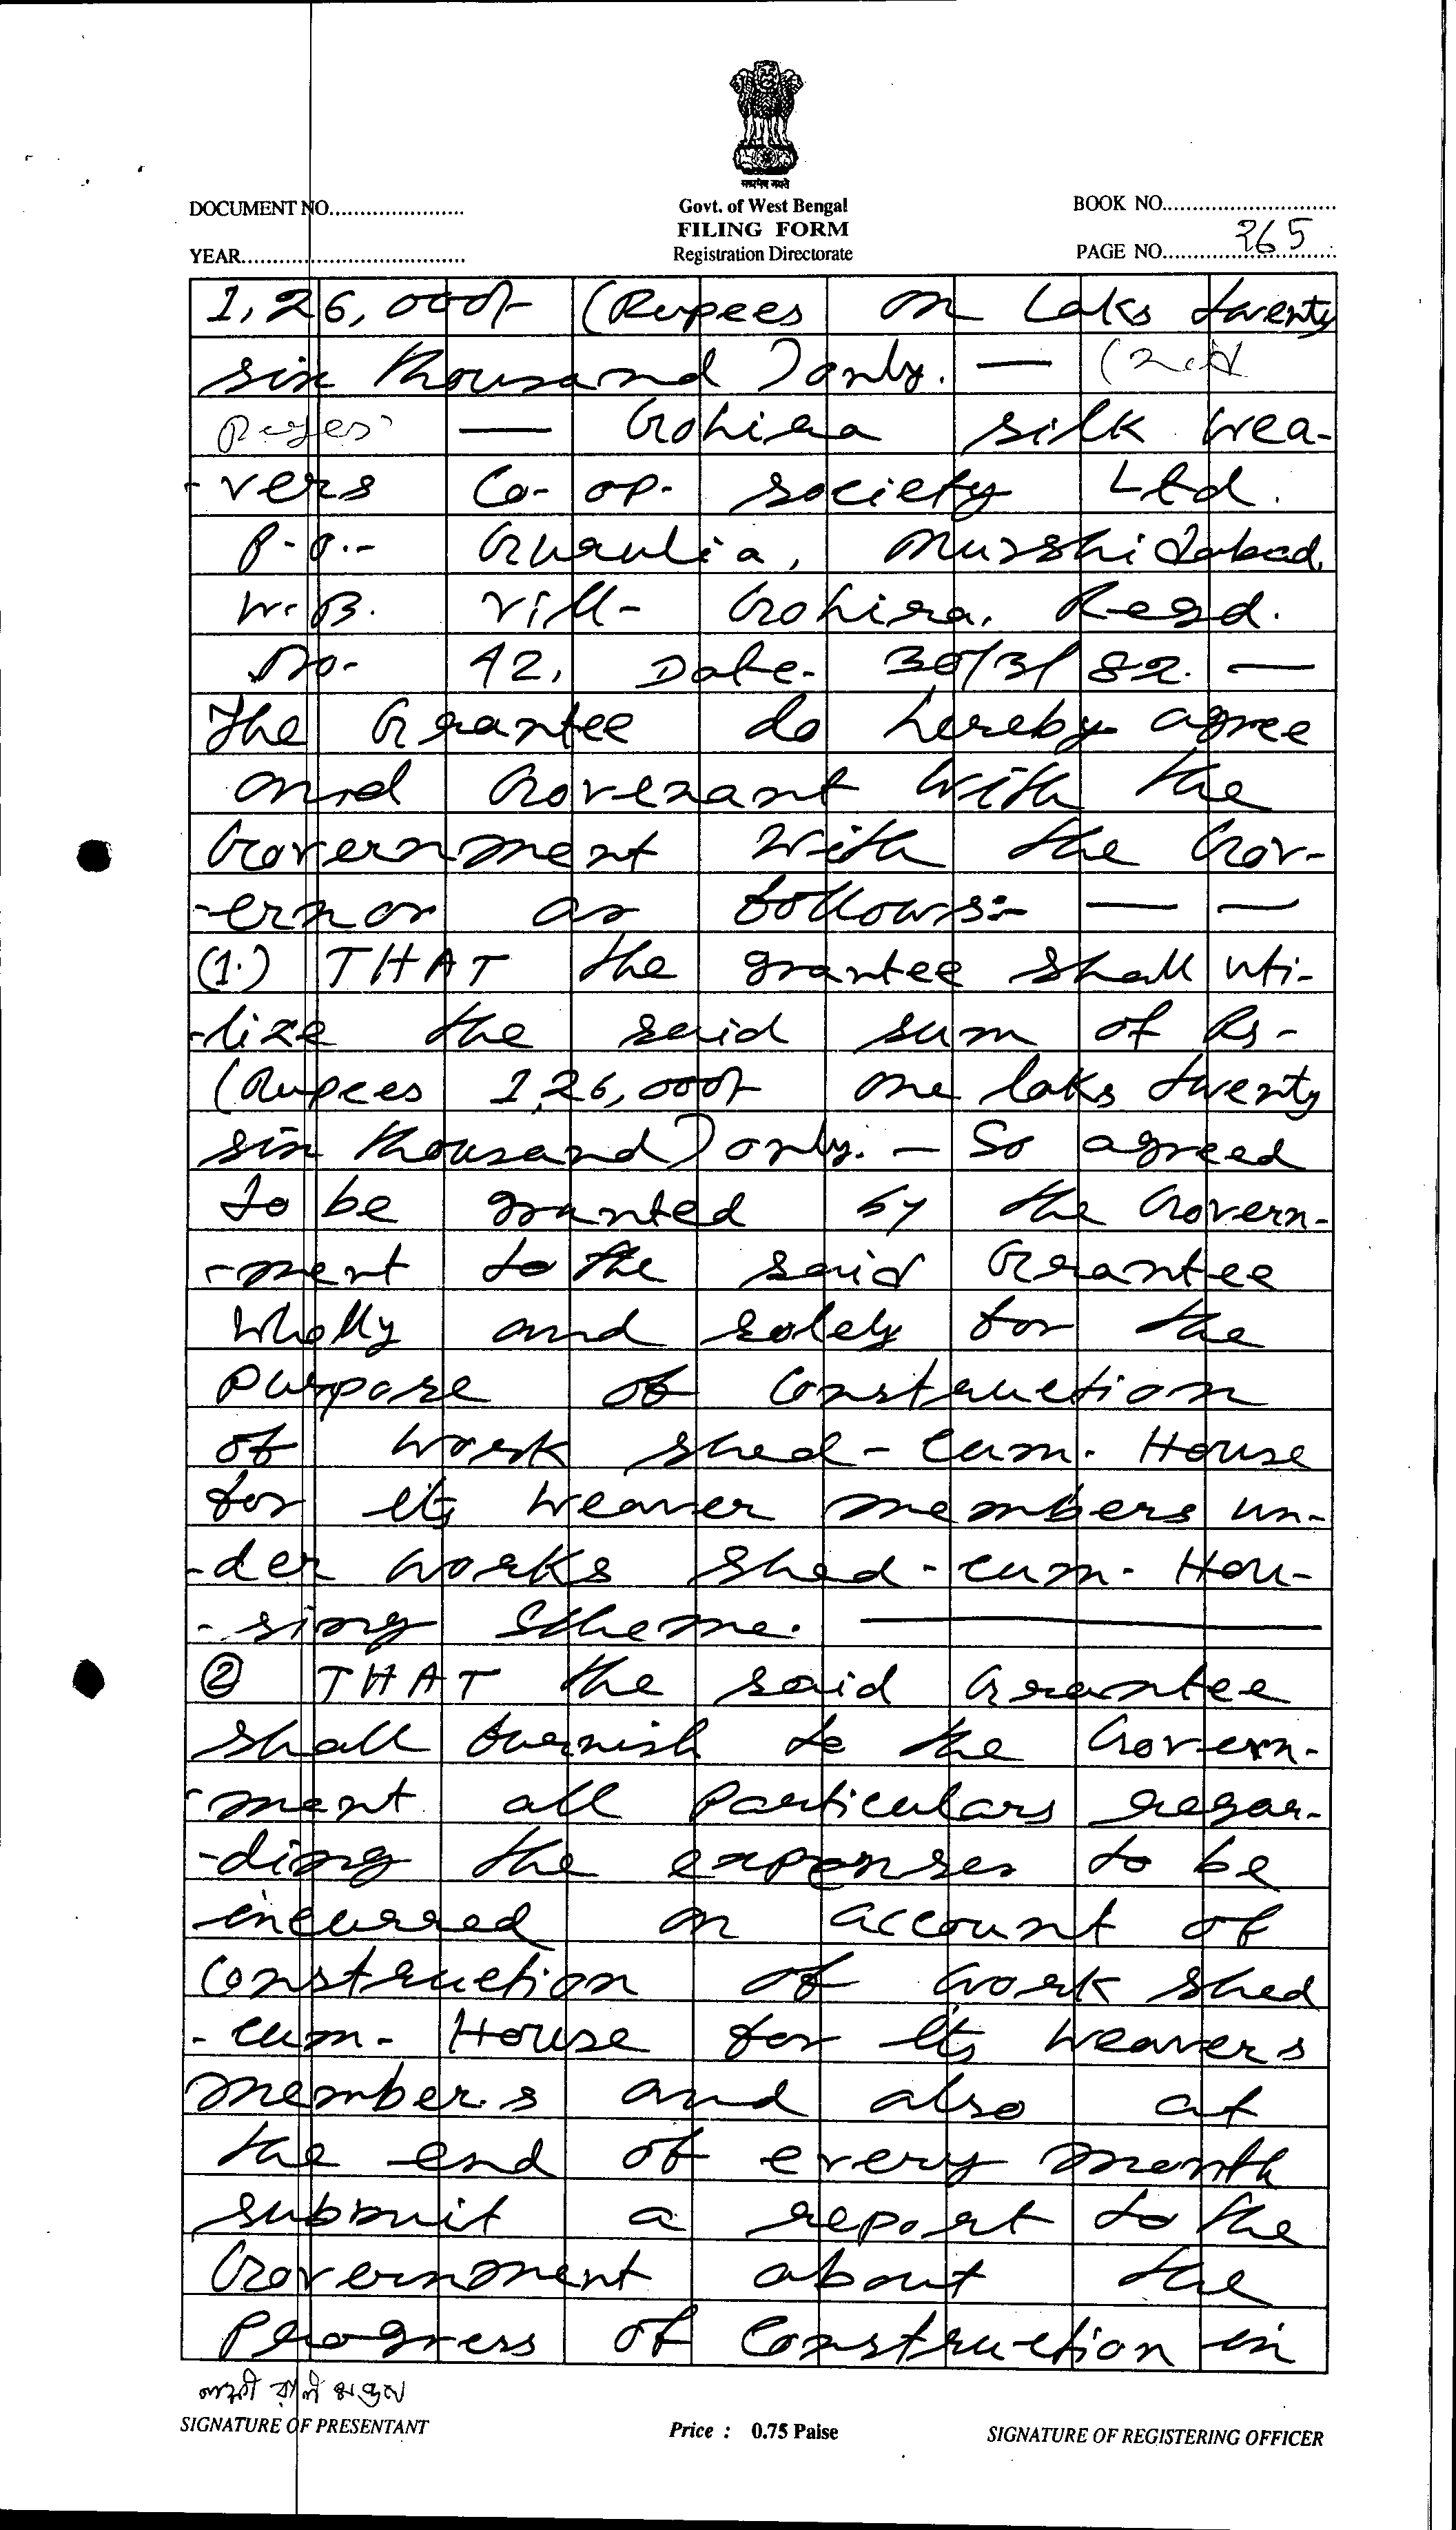 सत्यमेव जयते
DOCUMENT NO......................
Govt. of West Bengal
BOOK NO............................
FILING FORM
YEAR.....................................
Registration Directorate
PAGE NO............................ 265
1,26,000/- (Rupees on Laks twenty
six thousand) only. — (2nd
Pages) — Gohira silk wea-
-vers Co-op- society Ltd.
P.O.- Guraulia, Murshidabad,
W.B. Vill- Gohira. Regd.
No- 42, Date- 30/3/82. —
The Grantee do hereby agree
and Covenant with the
Government with the Gov-
-ernor as follows:- — —
(1.) THAT the grantee shall uti-
-lize the said sum of Rs-
(Rupees 1,26,000/- one laks twenty
six thousand) only. — So agreed
to be granted by the Govern-
-ment to the said Grantee
Wholly and solely for the
Purpose of Construction
of work shed-cum-House
for its weaver members un-
-der works shed-cum-Hou-
-sing Scheme. —
② THAT the said Grantee
shall furnish to the Govern-
-ment all Particulars regar-
-ding the expenses to be
incurred on account of
Construction of work shed
-cum-House for its weavers
members and also at
the end of every month
submit a report to the
Government about the
Progress of Construction in
লক্ষ্মী রানী মন্ডল
SIGNATURE OF PRESENTANT
Price : 0.75 Paise
SIGNATURE OF REGISTERING OFFICER